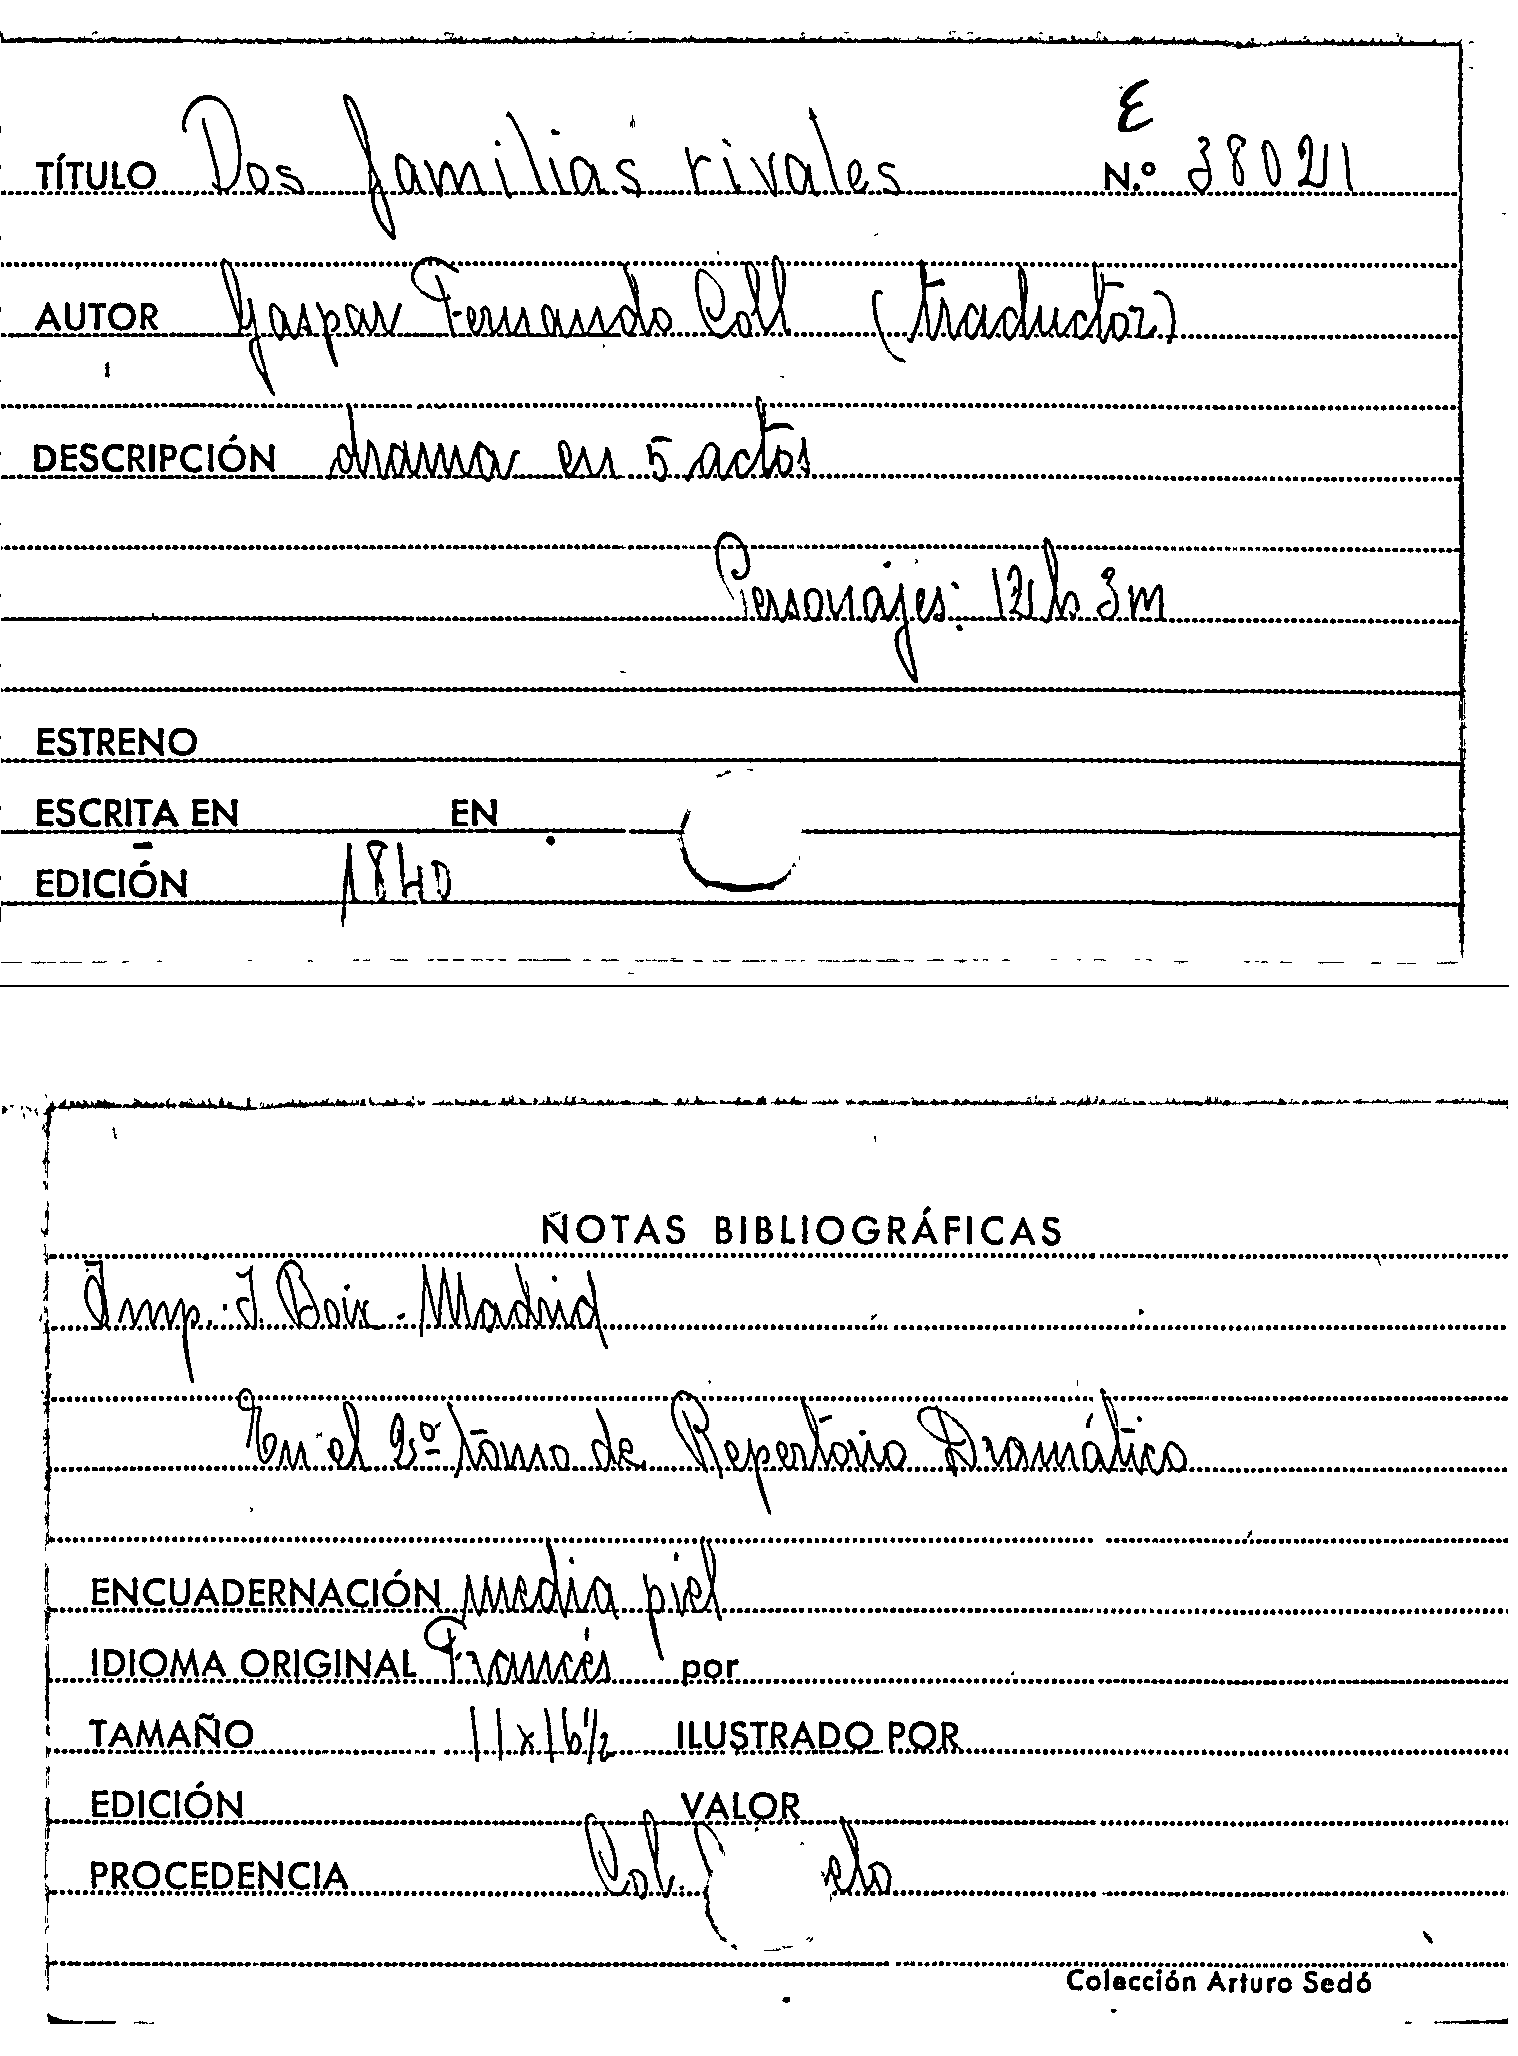 E
TÍTULO Dos familias rivales N.º 38021
AUTOR Gaspar Fernando Coll (traductor)
DESCRIPCIÓN drama en 5 actos
Personajes: 12 h 3 m
ESTRENO
ESCRITA EN EN
EDICIÓN 1840
NOTAS BIBLIOGRÁFICAS
Imp. J. Boix - Madrid
En el 2º tomo de Repertorio Dramático
ENCUADERNACIÓN media piel
IDIOMA ORIGINAL Francés por
TAMAÑO 11 x 16 ½ ILUSTRADO POR
EDICIÓN VALOR
PROCEDENCIA Col.
Colección Arturo Sedó